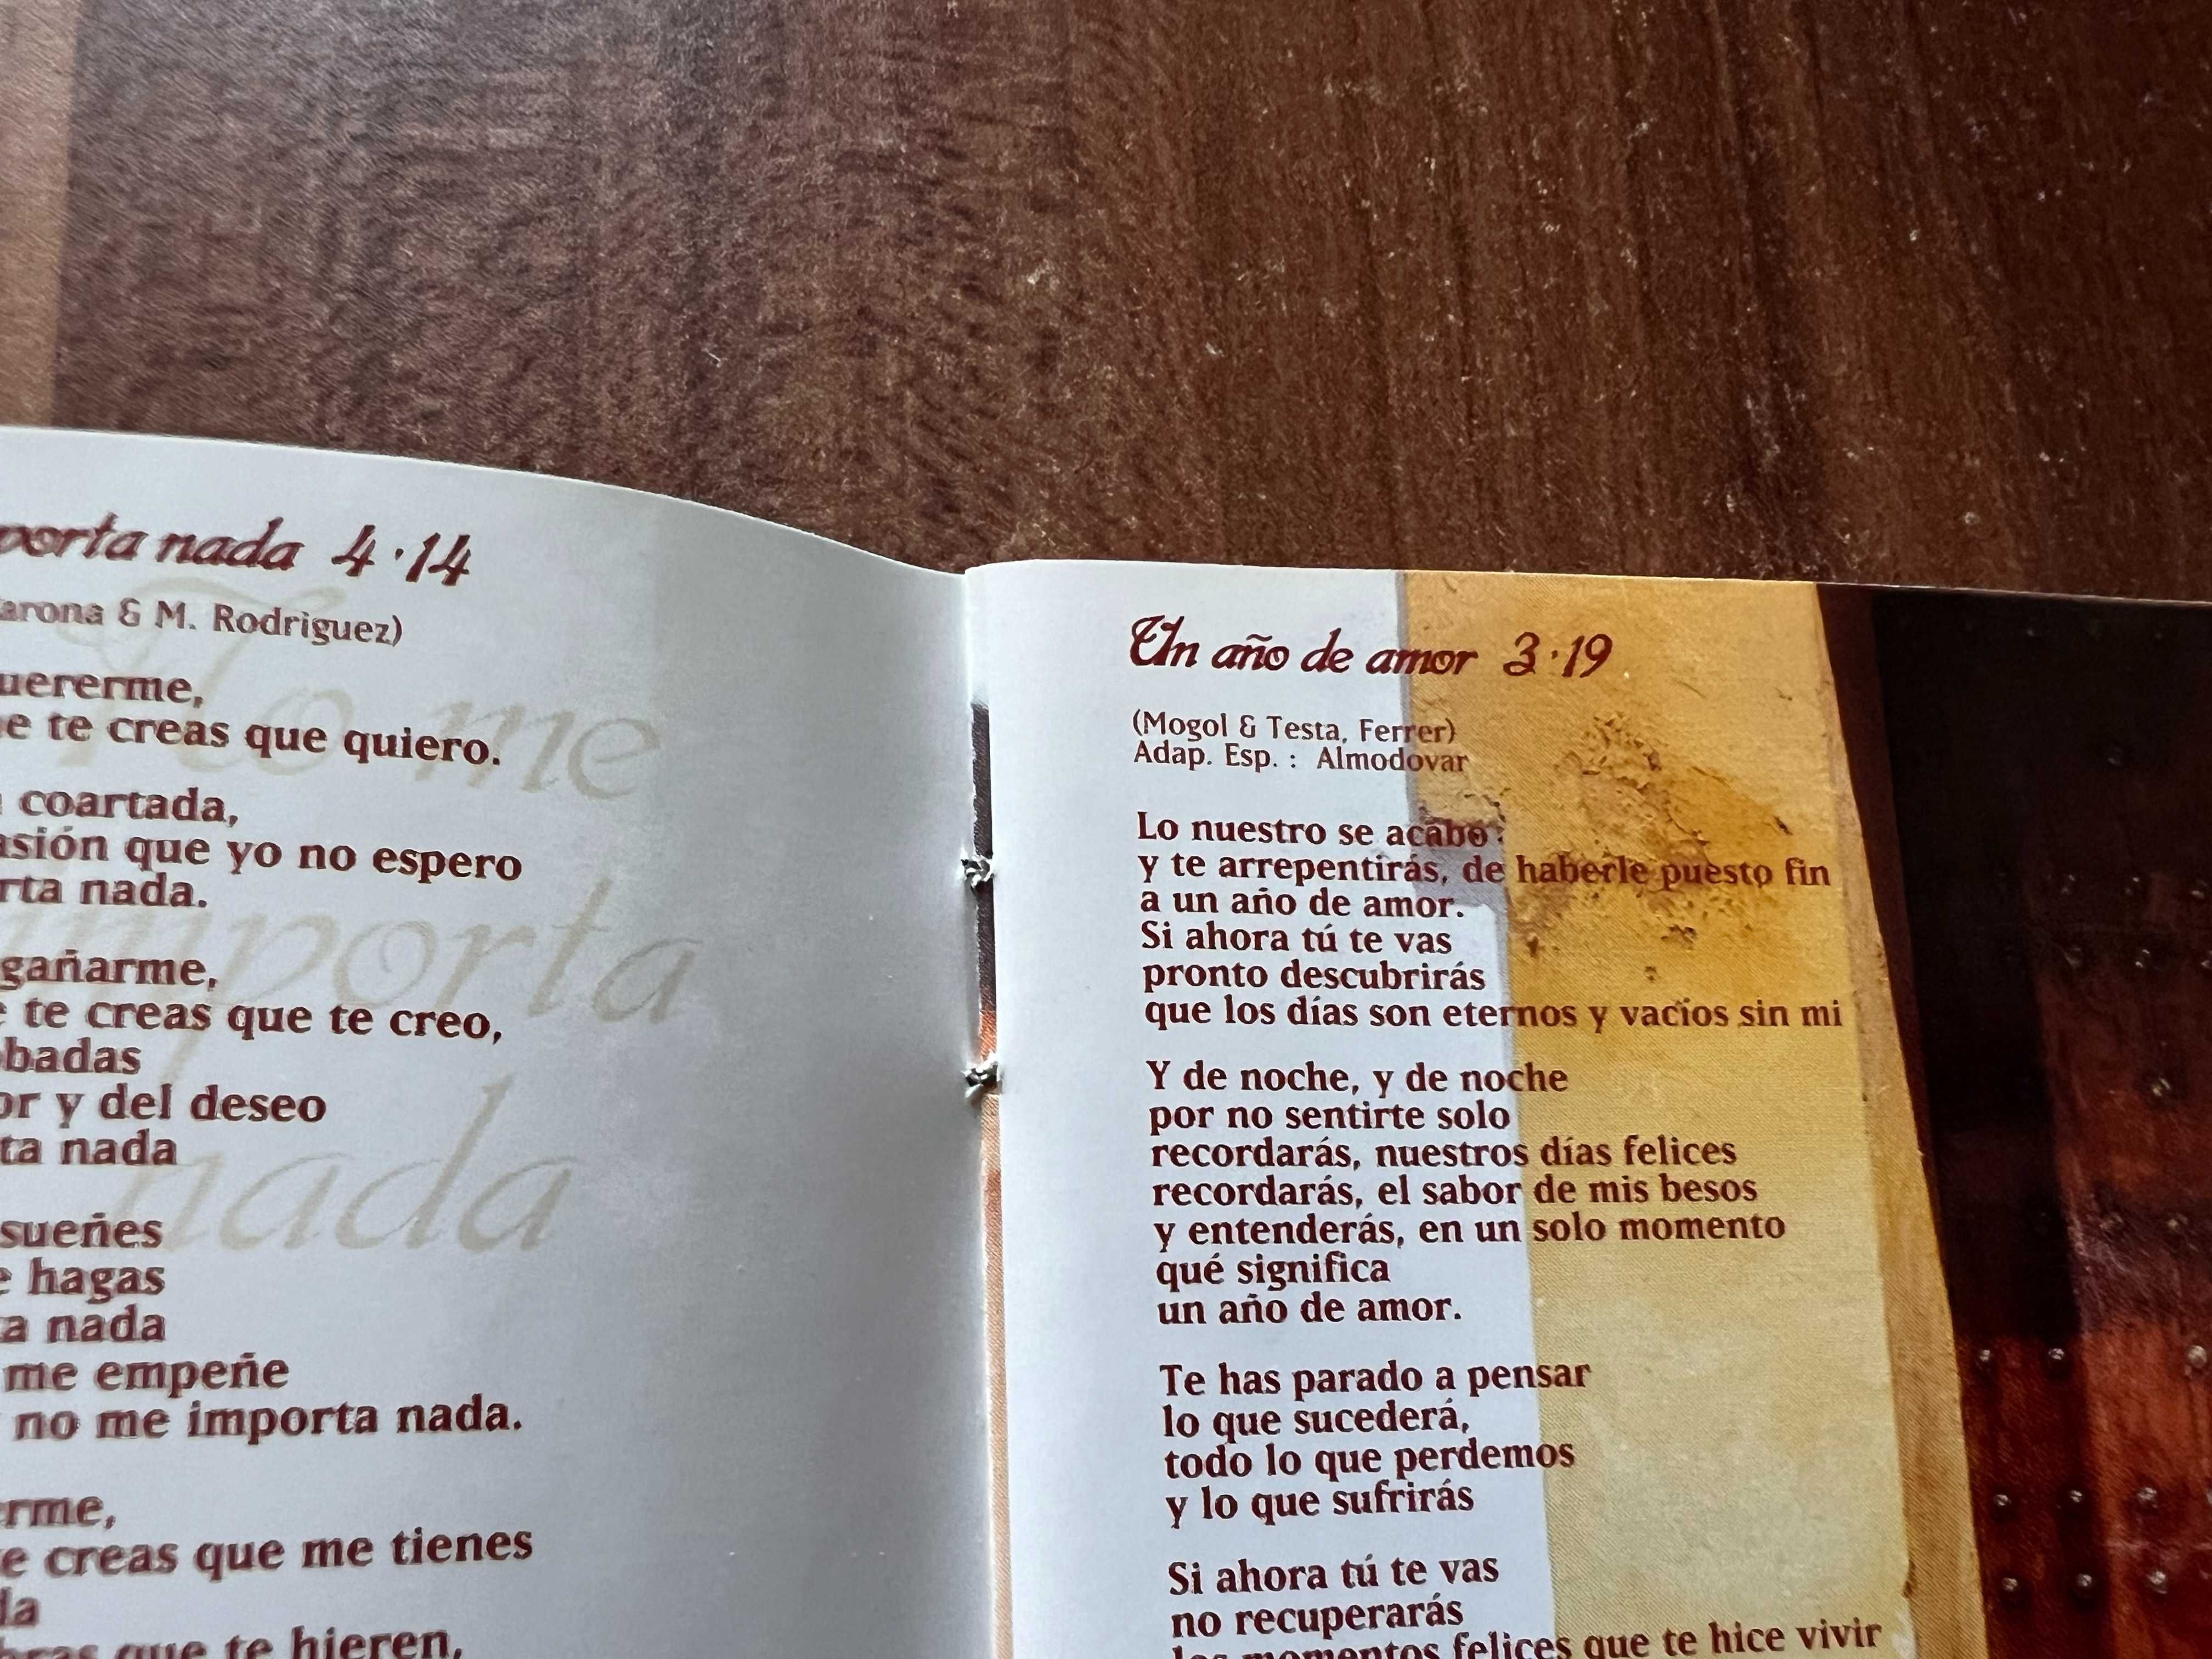 porta nada 4·14
arona & M. Rodriguez)
uererme,
e te creas que quiero.
coartada,
asión que yo no espero
rta nada.
gañarme,
te creas que te creo,
badas
or y del deseo
ta nada
sueñes
e hagas
a nada
me empeñe
no me importa nada.
erme,
e creas que me tienes
la
bras que te hieren,
No me
importa
nada
Un año de amor 3·19
(Mogol & Testa, Ferrer)
Adap. Esp. : Almodovar
Lo nuestro se acabo
y te arrepentirás, de haberle puesto fin
a un año de amor.
Si ahora tú te vas
pronto descubrirás
que los días son eternos y vacíos sin mi
Y de noche, y de noche
por no sentirte solo
recordarás, nuestros días felices
recordarás, el sabor de mis besos
y entenderás, en un solo momento
qué significa
un año de amor.
Te has parado a pensar
lo que sucederá,
todo lo que perdemos
y lo que sufrirás
Si ahora tú te vas
no recuperarás
los momentos felices que te hice vivir